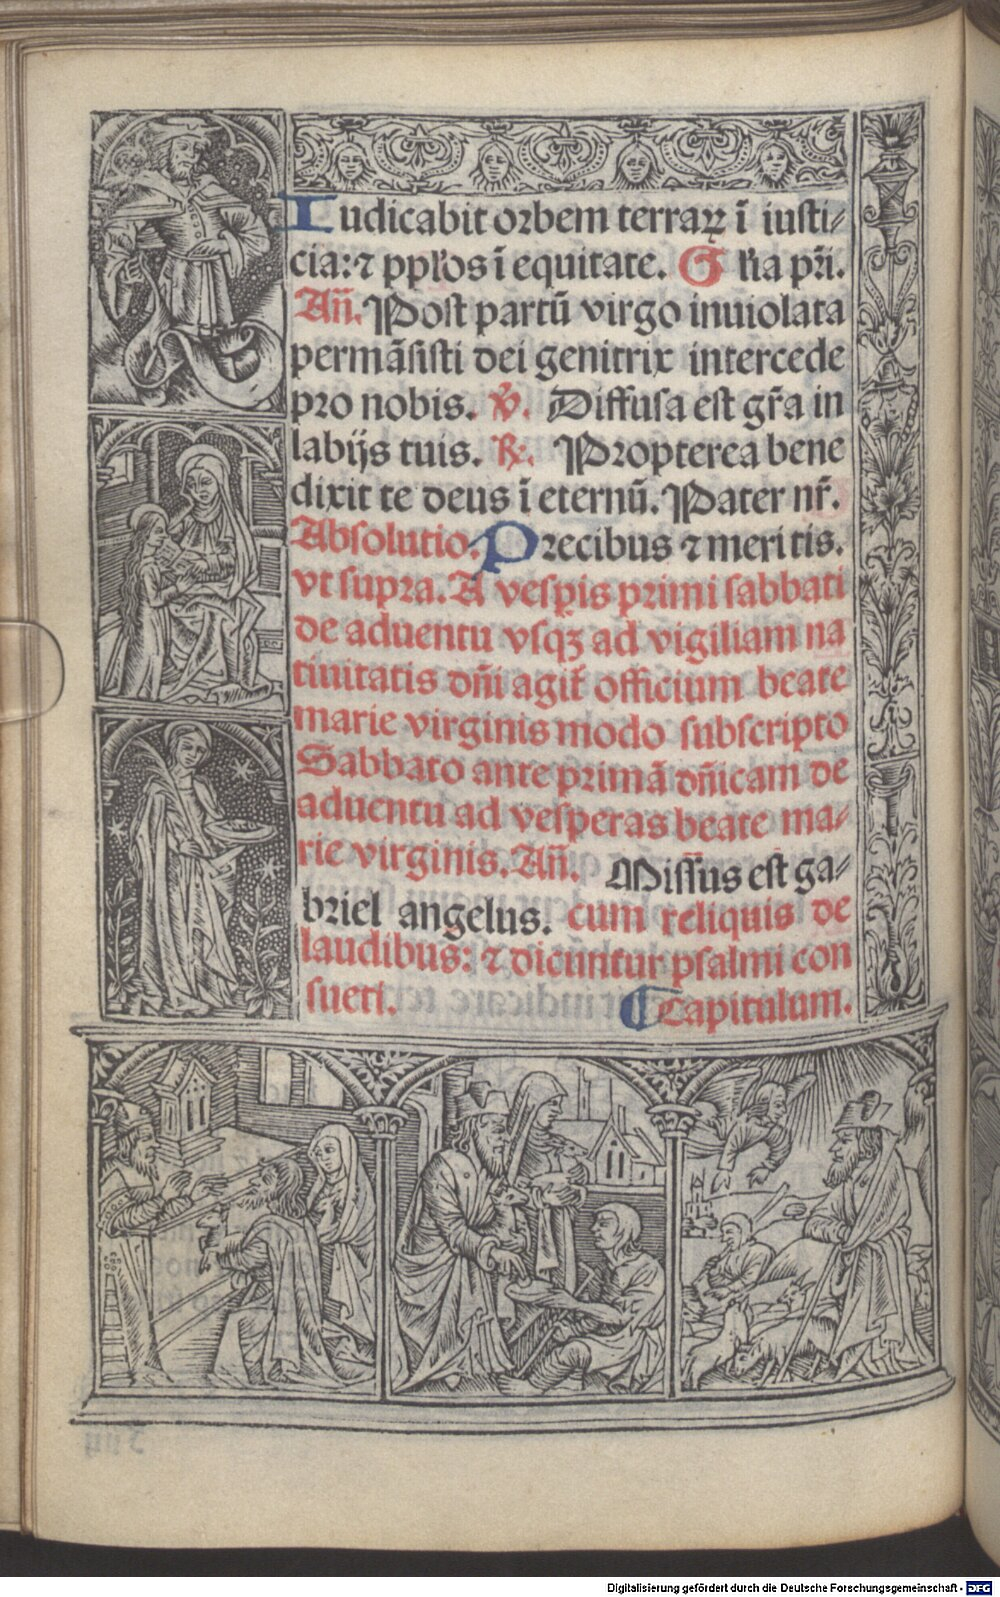 Iudicabit orbem terraꝝ ī iusti⸗
cia: ⁊ ppl̓os ī equitate. Gl̓ia pr̄i.
An̄. Post partū virgo inuiolata
permāsisti dei genitrix intercede
pro nobis. ℣. Diffusa est gr̄a in
labijs tuis. ℟. Propterea bene
dixit te deus ī eternū. Pater nr̄.
Absolutio. Precibus ⁊ meritis.
vt supra. A vesꝑis primi sabbati
de aduentu vsqꝫ ad vigiliam na
tiuitatis dn̄i agit̄ officium beate
marie virginis modo subscripto
Sabbato ante primā dn̄icam de
aduentu ad vesperas beate ma⸗
rie virginis. An̄. Missus est ga⸗
briel angelus. cum reliquis de
laudibus: ⁊ dicuntur psalmi con
sueti. ¶ Capitulum.
Digitalisierung gefördert durch die Deutsche Forschungsgemeinschaft - DFG